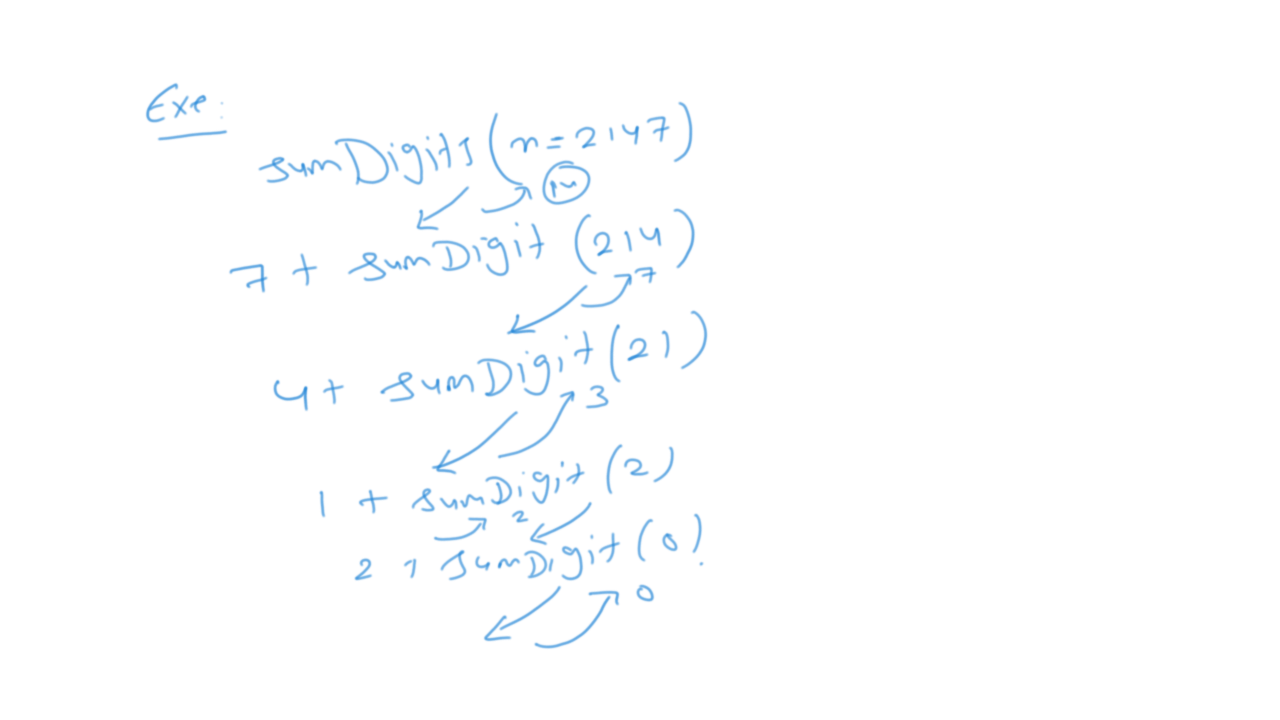 Exe:
sumDigits(n=2147)
14
7 + sumDigit (214)
7
4+ sumDigit(21)
3
1 + sumDigit (2)
2
2 + sumDigit(0)
0